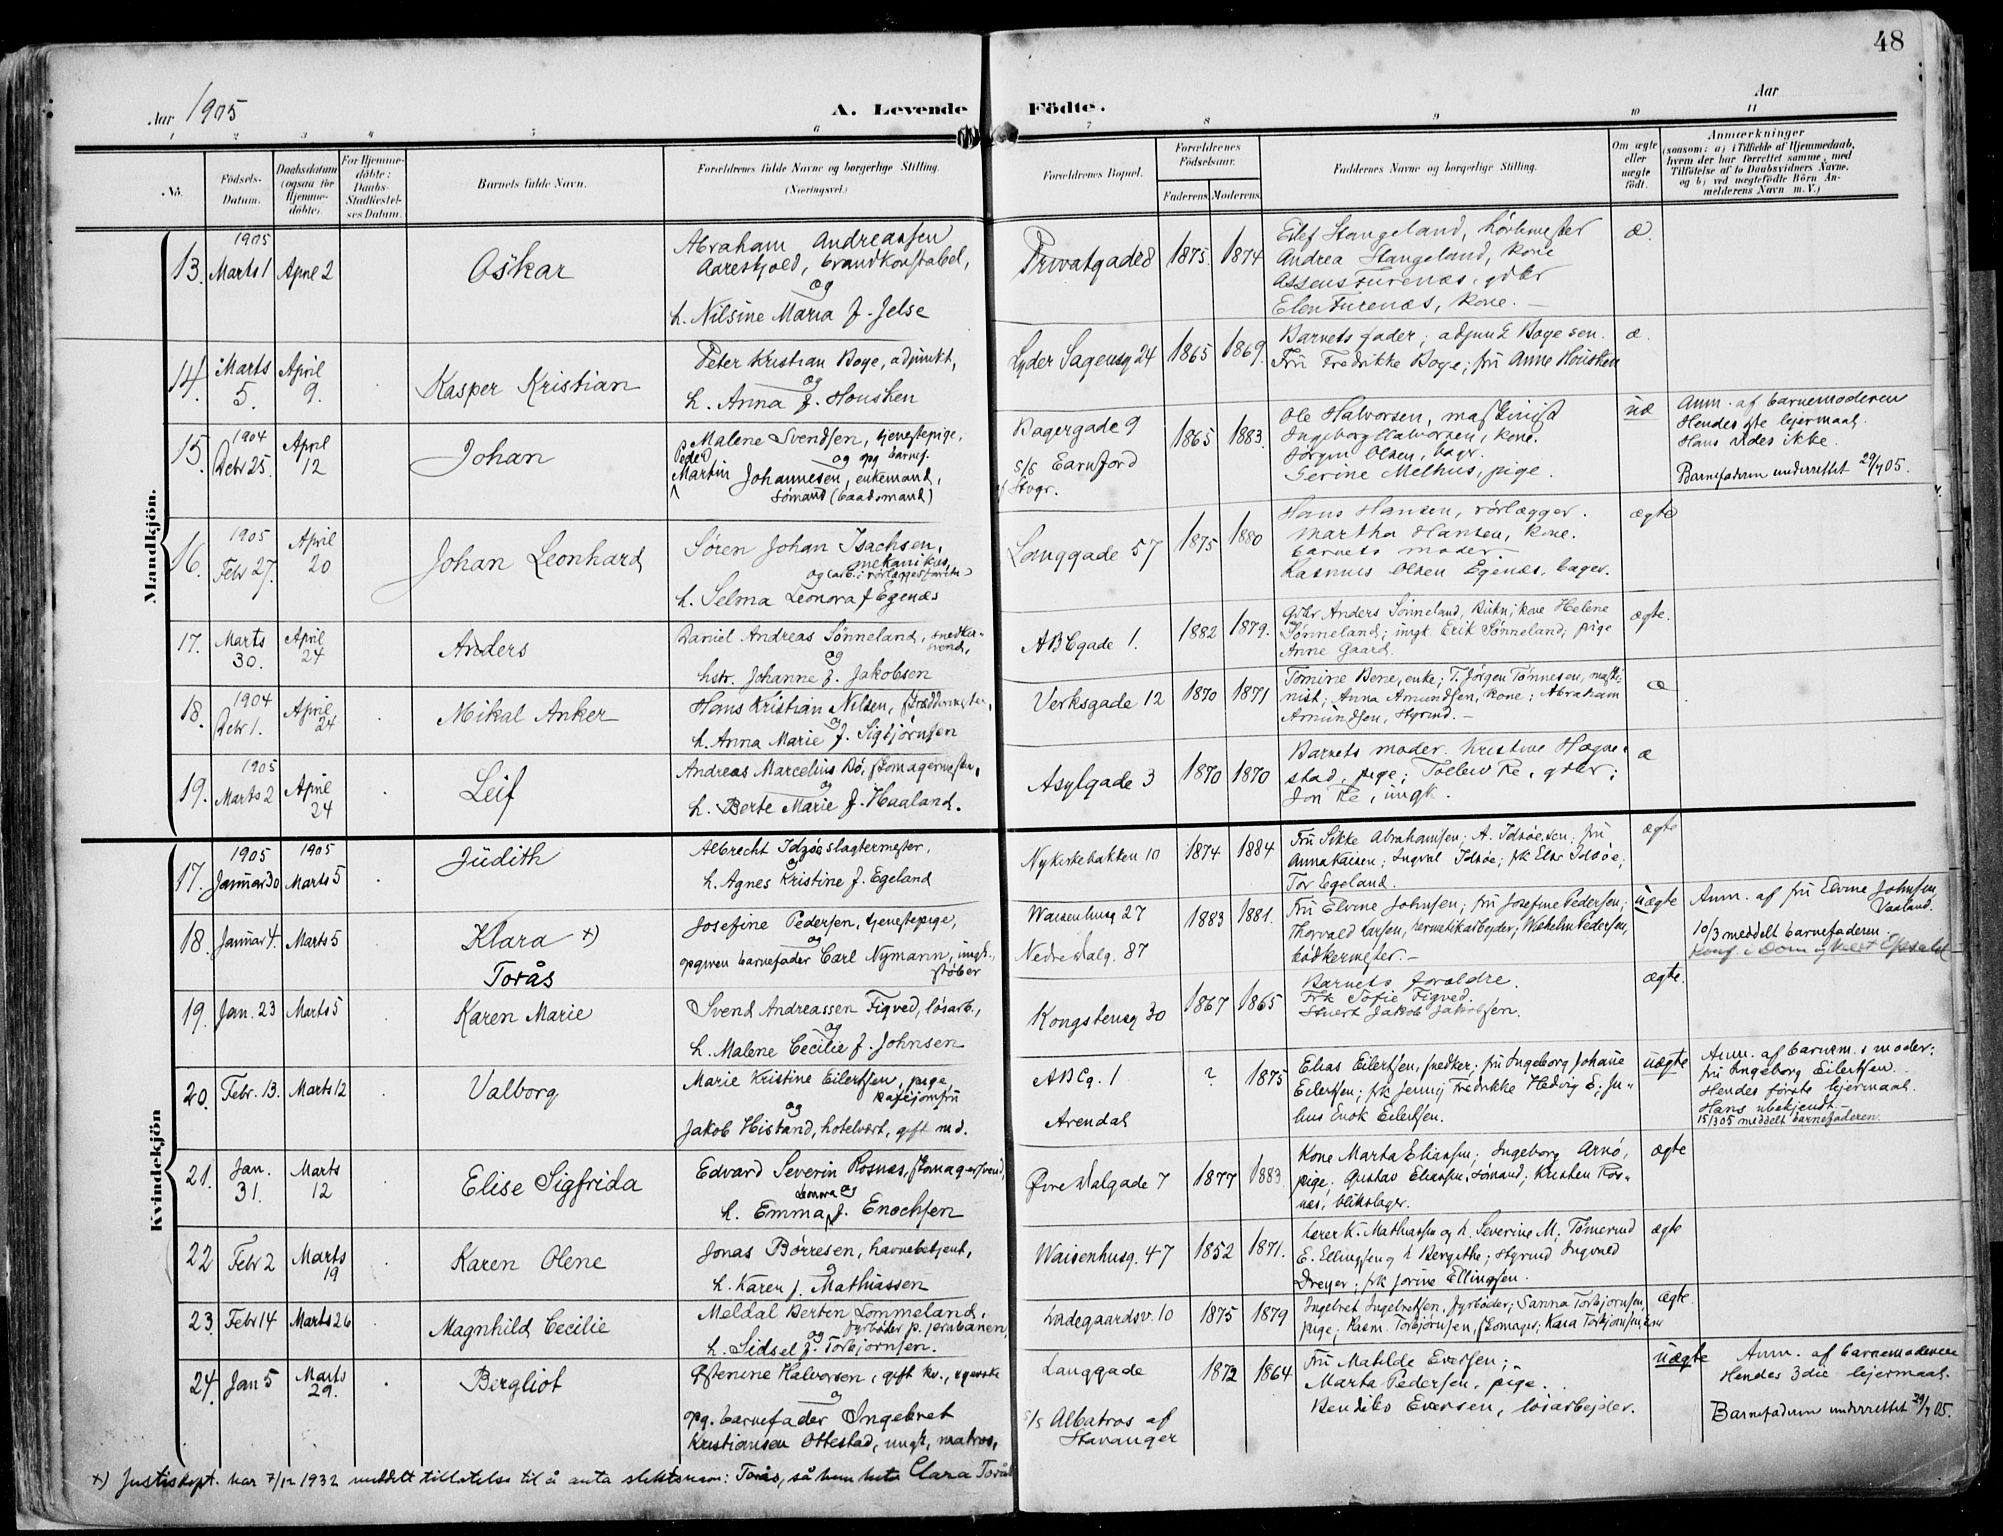 48
Aar 1905
A. Levende Födte.
Aar
1 2 3 4 5 6 7 8 9 10 11
No.
Födsels-Datum.
Daabsdatum (ogsaa for Hjemmedöbte)
For Hjemmedöbte: Daabs-Stadfæstelses Datum.
Barnets fulde Navn.
Forældrenes fulde Navne og borgerlige Stilling.
(Næringsvei.)
Forældrenes Bopæl.
Forældrenes Födselsaar.
Faderens. Moderens.
Faddernes Navne og borgerlige Stilling.
Om ægte eller uægte födt.
Anmærkninger
(saasom: a) i Tilfælde af Hjemmedaab, hvem der har forrettet samme, med Tilföielse af to Daabsvidners Navne. og b) ved uægtefödte Börn Anmelderens Navn m. V.)
Mandkjön.
13. 1905 Marts 1 April 2
Oskar
Abraham Andreassen
Aareskjold, brandkonstabel,
og
h. Nilsine Maria f. Jelse
Privatgade 8
1875. 1874
Eilef Stangeland,
Andrea Stangeland, kone
Assens Furenæs, gdbr
Elen Furenæs, kone. —
æ.
14. Marts 5. April 9.
Kasper Kristian
Peter Kristian Boge, adjunkt,
og
h. Anna f. Housken
Lyder Sagensg 24
1865 1869.
Barnets fader; adjunkt Bogesen.
Fru Fredrikke Boge; fru Anne Housken
æ.
15. 1904 Debr 25. April 12
Johan
Malene Svendsen, tjenestepige,
og opg barnef.
Peder
Martin Johannesen, enkemand,
sømand (baadsmand)
Bagergade 9
S/S Earnford
af Stvgr.
1865 1883.
Ole Halvorsen, maskinist
Ingeborg Halvorsen, kone.
Jørgen Olsen, bagr.
Serine Melhus, pige.
uæ
Anm. af barnemoderen
Hendes 1ste lejermaal.
Hans vides ikke.
Barnefaderen underrettet 29/4 05.
16. 1905 Febr 27. April 20
Johan Leonhard
Søren Johan Isachsen,
mekanikus,
og
h. Selma Leonora f Egenæs
Langgade 57
1875 1880
Hans Hansen, rørlægger.
Martha Hansen, kone.
barnets moder.
Rasmus Olsen Egenæs, bager.
ægte
17. Marts 30. April 24
Anders
Daniel Andreas Sønneland, snedker-
svend,
og
hstr. Johanne f. Jakobsen
ABCgade 1.
1882 1879.
Gdbr Anders Sønneland, kone Helene
Sønneland; ungk. Erik Sønneland; pige
Anne Gaard.
ægte.
18. 1904 Debr 1. April 24
Mikal Anker
Hans Kristian Nilsen, skræddermester,
og
h. Anna Marie f. Sigbjørnsen
Verksgade 12
1870 1871
Tomine Bene, enke; T. Jørgen Tønnesen, maski-
nist; Anna Amundsen, kone; Abraham
Amundsen, styrmd. —
æ
19. 1905 Marts 2 April 24
Leif
Andreas Marcelius Bø, skomagermester,
og
h. Berte Marie f. Haaland.
Asylgade 3
1870 1870
Barnets moder. Kristine Hogne-
stad, pige; Tollev Re, gdbr;
Jon Re, ungk.
æ
Kvindekjön
17. 1905 Januar 30 1905 Marts 5
Judith
Albrecht Idsøe slagtermester,
og
h. Agnes Kristine f. Egeland
Nykirkebakken 10
1874 1884
Fru Sikke Abrahamsen; A. Idsøe sen; fru
Anna Kaisen; Ingval Idsøe; frk Elas Idsøe;
Tor Egeland.
ægte
18. Januar 4. Marts 5
Klara x)
Torås
Josefine Pedersen, tjenestepige,
og
opgiven barnefader Carl Nymann, ungk.,
støber
Waisenhusg 27
Nedre Dalg. 87
1883 1881.
Fru Elvine Johnsen; fru Josefine Pedersen;
Thorvald Larsen, hermetikarbejder; Wilhelm Pedersen,
bødkermester. —
uægte
Anm. af fru Elvine Johnsen
Vaaland.
10/3 meddelt barnefaderen.
19. Jan. 23 Marts 5
Karen Marie
Svend Andreassen Figved, løsarb.,
og
h. Malene Cecilie f. Johnsen
Kongstensg 30
1867 1865
Barnets foraldre.
Frk Sofie Figved.
Stuert Jakob Jakobsen.
ægte.
20. Febr. 13. Marts 12
Valborg
Marie Kristine Eilertsen, pige,
kafejomfru
og
Jakob Histand, hotelvært, gift md.
ABCg. 1
Arendal
? 1875
Elias Eilertsen, snedker; fru Ingeborg Johane
Eilertsen; frk Jenny Fredrikke Hedvig E; Ju-
lius Enok Eilertsen.
uægte
Anm. af barnem.s moder:
fru Ingeborg Eilertsen.
Hendes første lejermaal.
Hans ubekjendt.
15/3 05 meddelt barnefaderen.
21. Jan. 31. Marts 12
Elise Sigfrida
Edvard Severin Rosnæs, skomagersvend,
Leonora og
h. Emma f. Enochsen
Øvre Dalgade 7
1877 1883
Kone Marta Eliassen; Ingeborg Arnø,
pige. Gustav Eliassen, sømand; Kristen Ros-
næs, blikslager.
ægte
22 Febr 2 Marts 19
Karen Olene
Jonas Børresen, havnebetjent,
og
h. Karen f. Mathiassen
Waisenhusg. 47
1852 1871.
Lærer K. Mathiassen og h. Severine M; Tømermd
E. Ellingsen og h Bergithe; styrmd Ingvald
Dreyer; frk Jorine Ellingsen.
ægte
23. Febr 14 Marts 26
Magnhild Cecilie
Meldal Bertin Lommeland,
fyrbøter p. jernbanen,
og
h. Sidsel f. Torbjørnsen.
Ladegaardsv. 10
1875 1879
Ingebret Ingebretsen, fyrbøder; Sanna Torbjørnsen,
pige; Rasm. Torbjørnsen, skomager; Kara Torbjørnsen,
ægte
24. Jan 5 Marts 29.
Bergliot
Gstenine Halvorsen, gift kv.,
og
opg. barnefader Ingebret
Kristiansen Ottestad, ungk, matros,
Langgade
S/S Albatros af
Stavanger
1872 1864
Fru Matilde Evensen;
Marta Pedersen, pige.
Bendiks Evensen, løsarbejder.
uægte
Anm. af barnemoderen
Hendes 3die lejermaal.
Barnefaderen underrettet 29/4 05.
x) Justisdept. har 7/12 1932 meddelt tillatelse til å anta slektsnavn: Torås, så hun heter Clara Torås